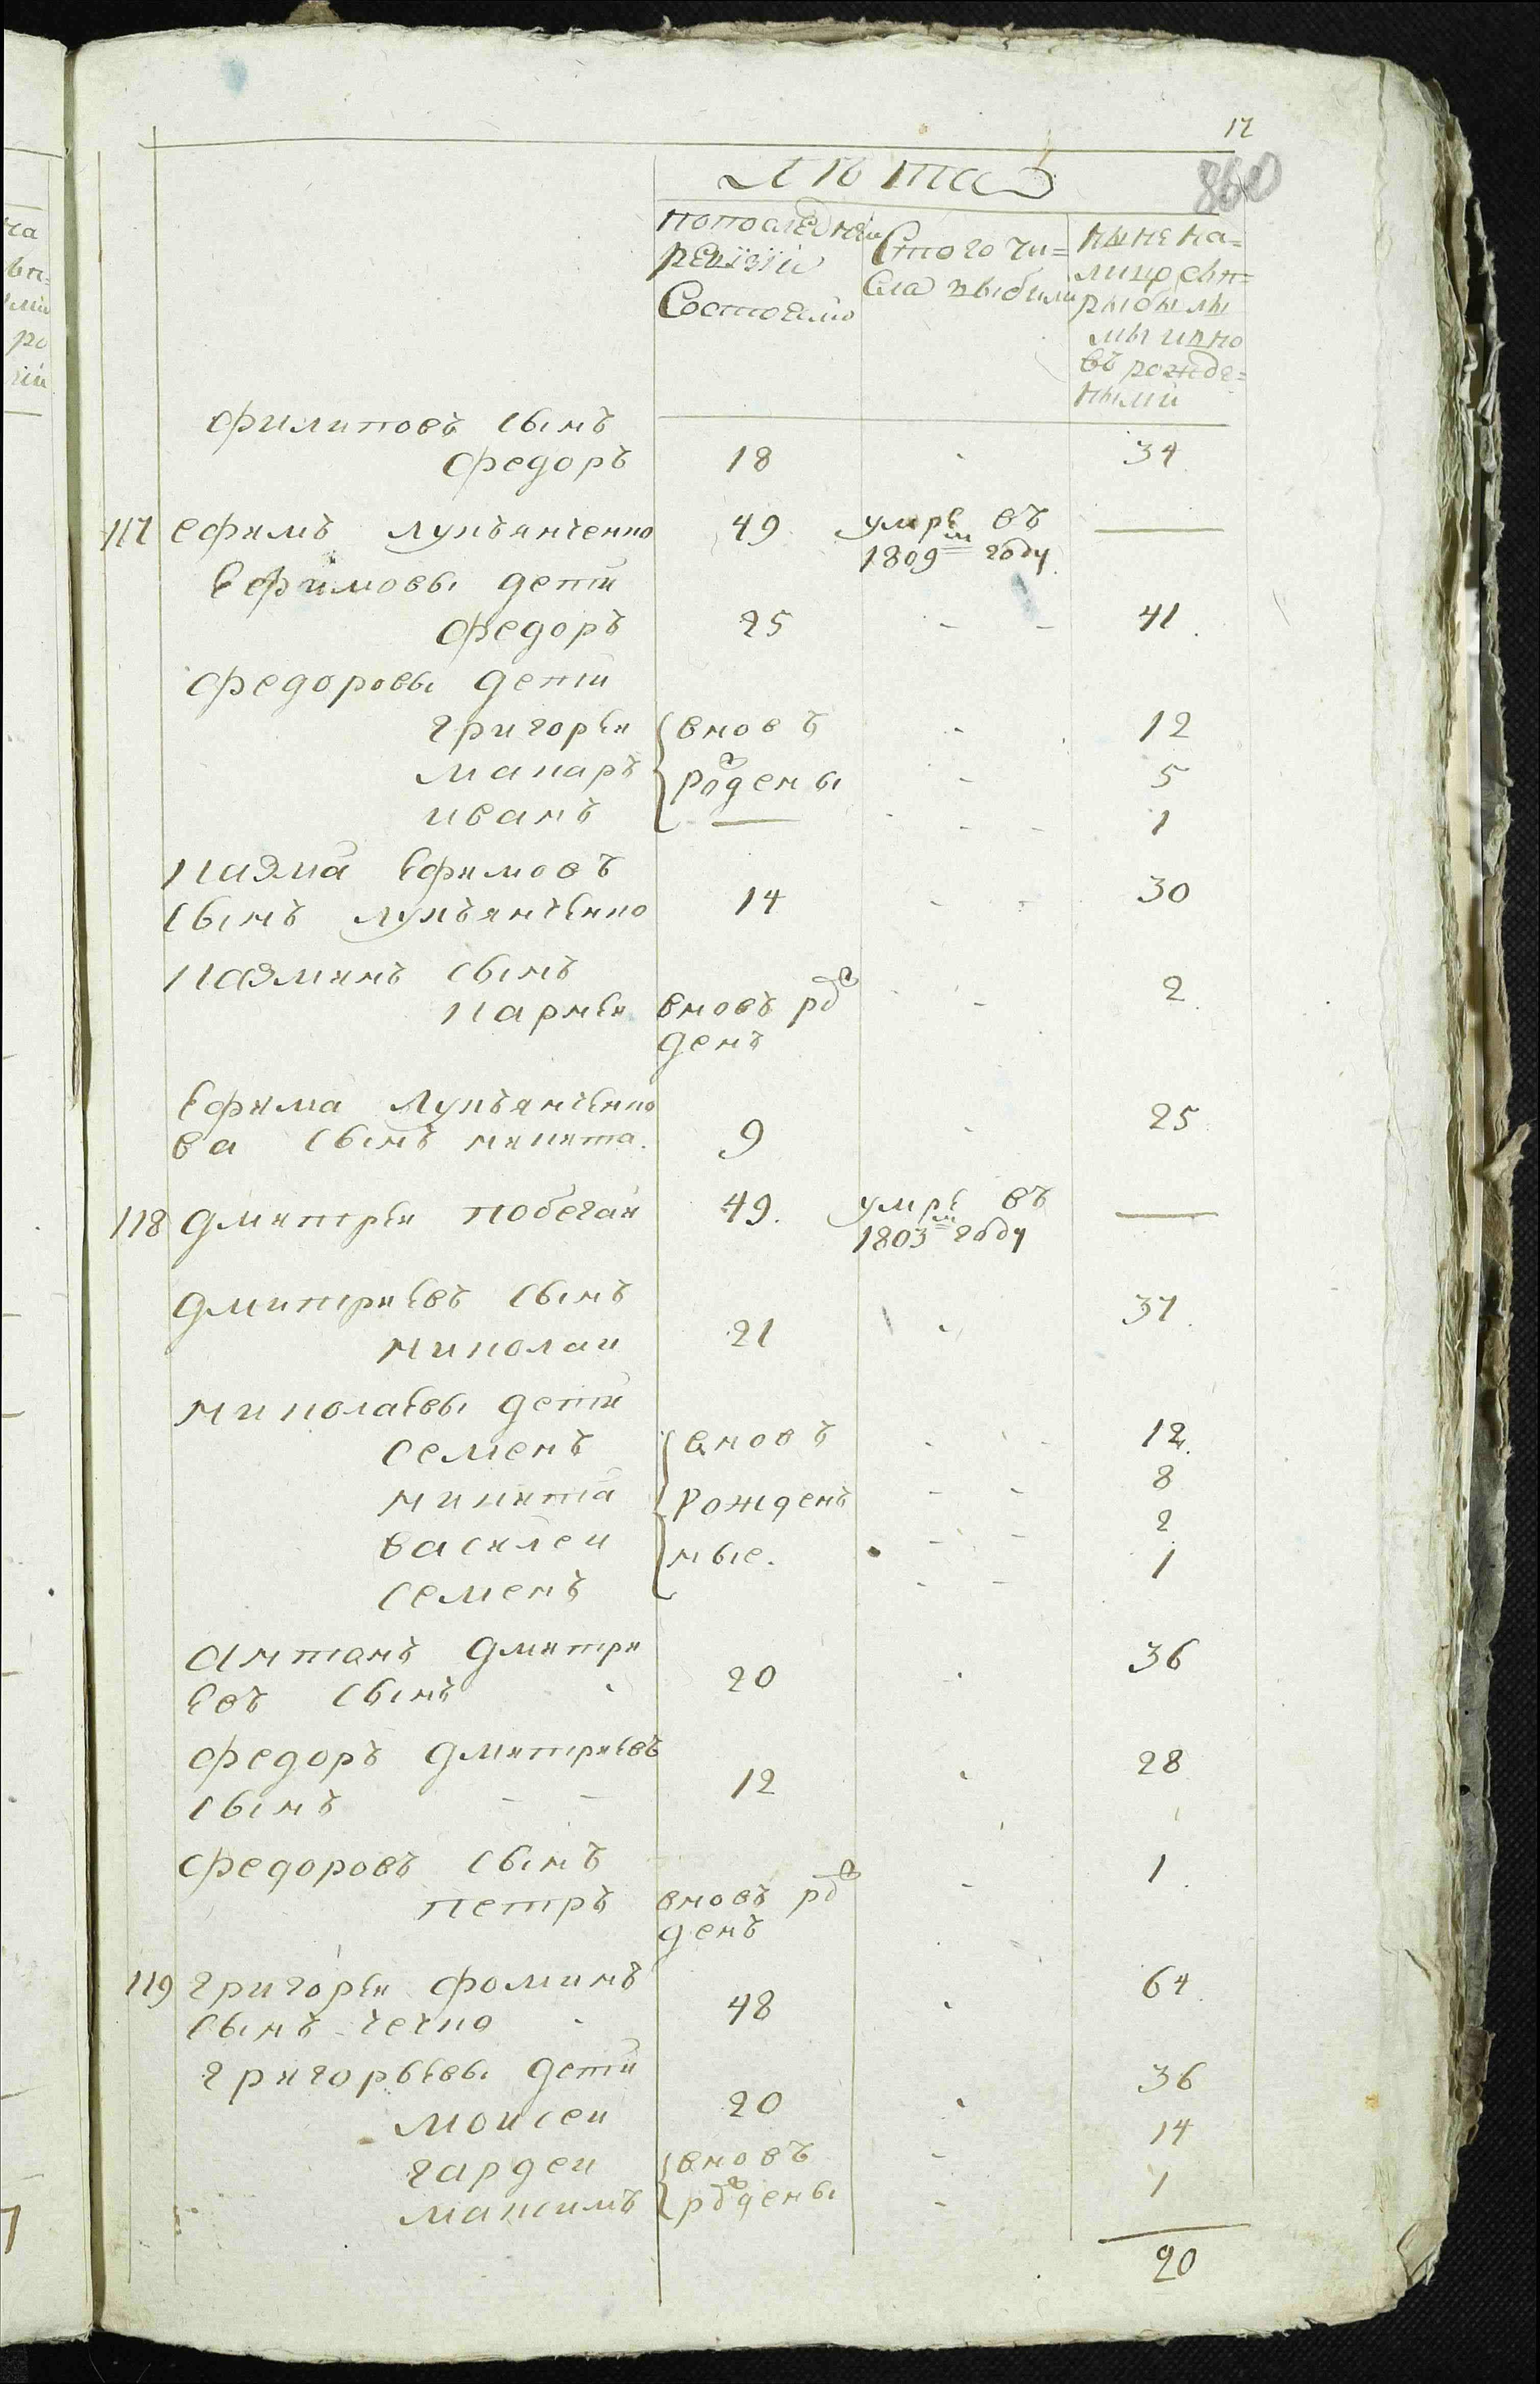 17
860
лѣта
попоследнеи ревизiи состояло
Стого чи=
сла выбыли
ныне на=
лицо сьп=
рыбылы
мы ивно
въ рожде=
ными
филиповъ сынъ
федоръ 18 34
117 ефимъ лукъянченко 49 умре въ 1809м году —
Ефимовы дети
федоръ 25 41
федоровы дети
григорей вновъ 12
макаръ рождены 5
иванъ 1
казма Ефимовъ
сынъ лукъянченко 14 30
казминъ сынъ 2
карней вновъ рож
денъ
Ефима лукъянченко
ва сынъ никита 9 25
118 дмитрей побегай 49 умре въ 1803м году —
дмитриевъ сынъ 37
николаи 21
николаевы дети
семенъ вновъ 12
никита рожденъ 8
василеи ные. 2
семенъ 1
антонъ дмитри 36
евъ сынъ 20
федоръ дмитриевъ 28
сынъ 12
федоровъ сынъ 1
петръ вновъ рож
денъ
119 григорей фоминъ 64
сынъ чечко 48
григорьевы дети 36
моисеи 20
гардеи вновъ 14
максимъ рождены 1
90